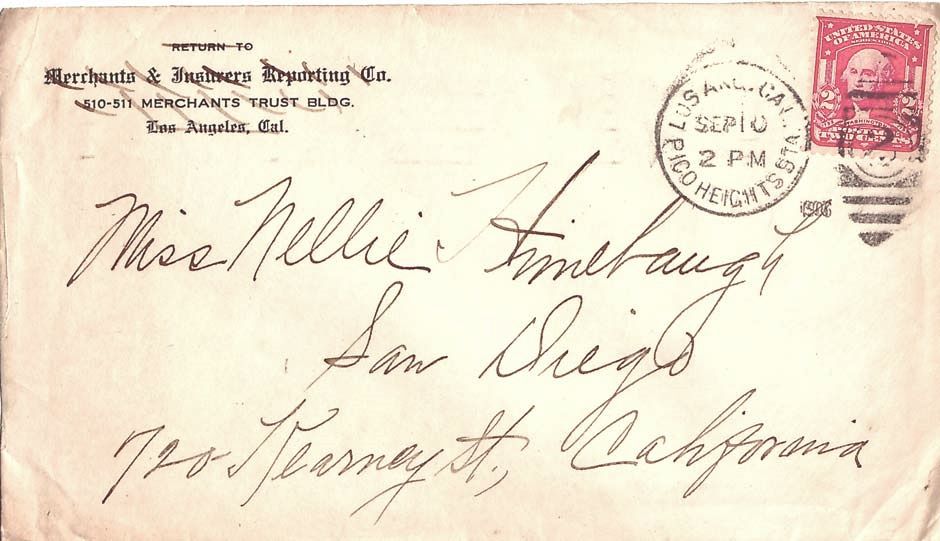 RETURN TO
Merchants & Insurers Reporting Co.
510-511 MERCHANTS TRUST BLDG.
Los Angeles, Cal.
LOS ANG. CAL.
SEP 10
2 PM
PICO HEIGHTS STA.
1906
UNITED STATES
OF AMERICA
2 2
POSTAGE
TWO CENTS
Miss Nellie Himebaugh
San Diego
720 Kearney St., California